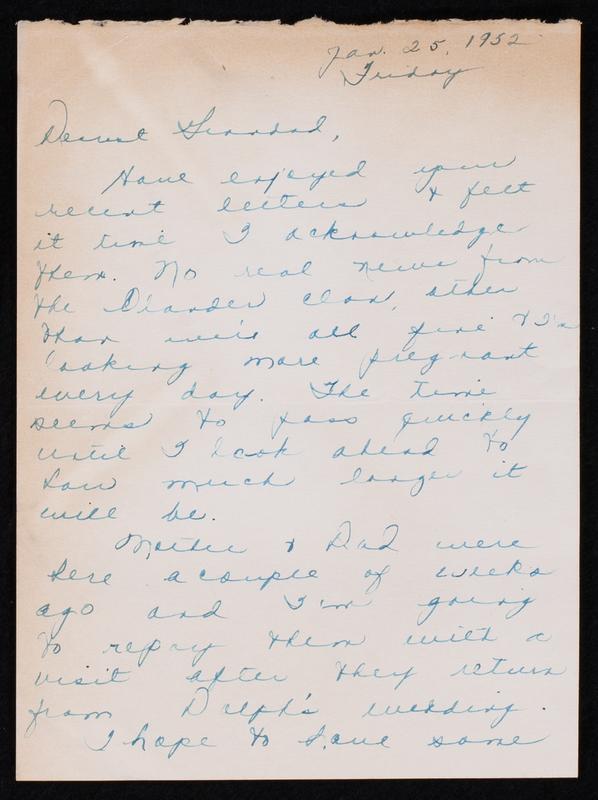 Jan. 25, 1952
Friday
Dearest Grandad,
Have enjoyed your
recent letters & felt
it time I acknowledge
them. No real news from
the clan, other
than we're all fine & I'm
looking more pregnant
every day. The time
seems to pass quickly
until I look ahead to
how much longer it
will be.
Mother & Dad were
here a couple of weeks
ago and I'm going
to repay them with a
visit after they return
from Dolph's wedding.
I hope to have some